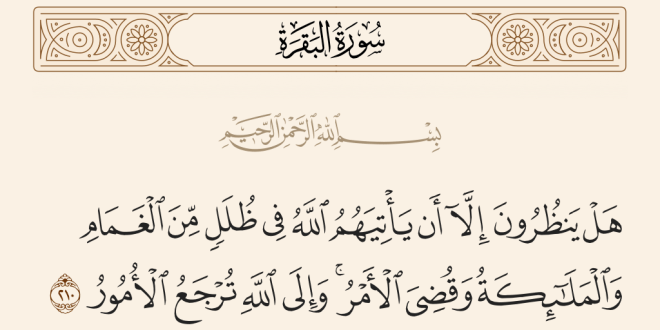 سُورَةُ البَقَرَةِ
بِسْمِ ٱللَّهِ ٱلرَّحْمَٰنِ ٱلرَّحِيمِ
هَلْ يَنظُرُونَ إِلَّآ أَن يَأْتِيَهُمُ ٱللَّهُ فِى ظُلَلٍ مِّنَ ٱلْغَمَامِ
وَٱلْمَلَٰٓئِكَةُ وَقُضِىَ ٱلْأَمْرُ ۚ وَإِلَى ٱللَّهِ تُرْجَعُ ٱلْأُمُورُ ٢١٠